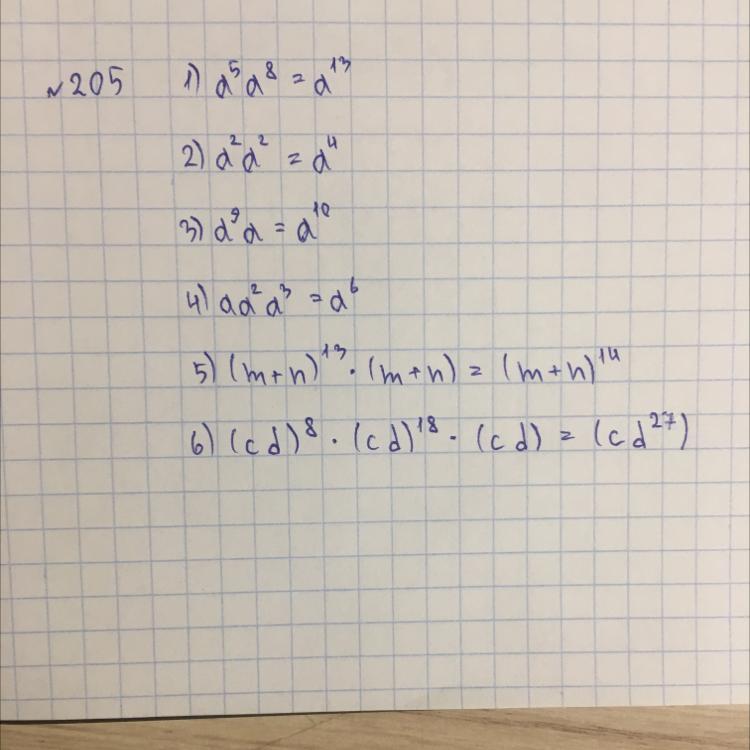 №205 1) a⁵a⁸ = a¹³
2) a²a² = a⁴
3) a⁹a = a¹⁰
4) aa²a³ = a⁶
5) (m+n)¹³ · (m+n) = (m+n)¹⁴
6) (cd)⁸ · (cd)¹⁸ · (cd) = (cd²⁷)